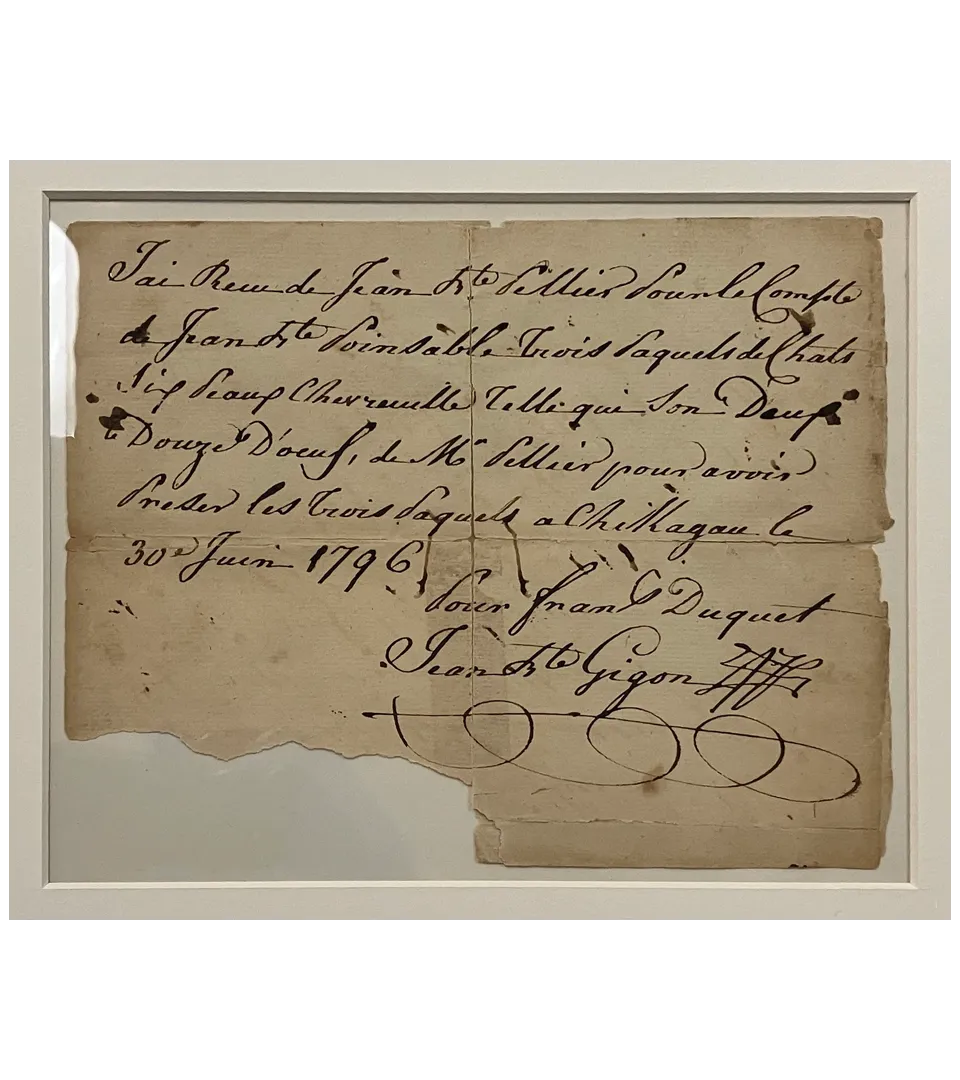 J'ai Recu de Jean Bte Pellier Pour le Compte
de Jean Bte Poinsable Trois Paquets de Chats
Six Peaux Chevreuille Telle que Son Deux
te Douze D'oeuf, de Mr Pellier pour avoir
Preser les Trois Paquets a Chikagau le
30e Juin 1796
Pour Frans Duquet
Jean Bte Gigon